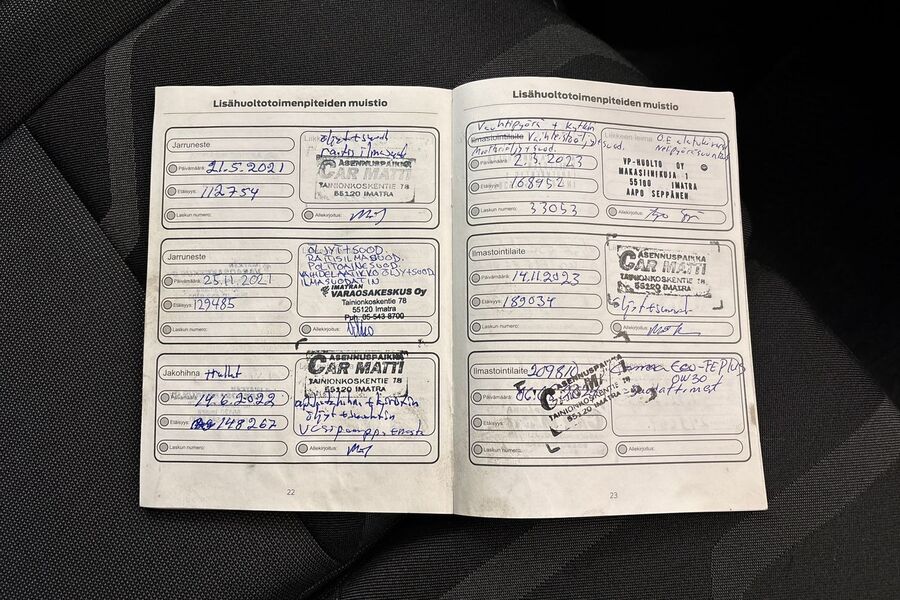 Lisähuoltotoimenpiteiden muistio
Jarruneste
Päivämäärä: 21.5.2021
Etäisyys: 112754
Laskun numero:
öljyt+suod
raitis ilmasuod
ASENNUSPAIKKA
CAR MATTI
TAINIONKOSKENTIE 78
55120 IMATRA
Allekirjoitus:
Jarruneste
Päivämäärä: 25.11.202
Etäisyys: 129485
Laskun numero:
ÖLJYT+SUOD.
RAITISILMASUOD.
POLTTOAINESUOD.
VAIHDELAATIKKO ÖLJYT+SUOD
ILMASUODATIN
IMATRAN
VARAOSAKESKUS Oy
Tainionkoskentie 78
55120 Imatra
Puh. 05-543 8700
Allekirjoitus:
Jakohihna Hullot
14.6.2022
Etäisyys: 148267
Laskun numero:
ASENNUSPAIKKA
CAR MATTI
TAINIONKOSKENTIE 78
55120 IMATRA
öljyt+suodatin
Allekirjoitus:
22
Lisähuoltotoimenpiteiden muistio
Vauhtipyörä + Kytkin
Ilmastointilaite Vaihteistoöljy+suod.
Moottoriöljy+suod.
Päivämäärä: 2.3.2023
Etäisyys: 168952
Laskun numero: 33053
Liikkeen leima:
Nelipyöräsuuntaus
VP-HUOLTO OY
MAKASIINIKUJA 1
55100 IMATRA
AAPO SEPPÄNEN
Allekirjoitus:
Ilmastointilaite
Päivämäärä: 14.11.2023
Etäisyys: 189034
Laskun numero:
ASENNUSPAIKKA
CAR MATTI
TAINIONKOSKENTIE 78
55120 IMATRA
öljyt+suodat
Allekirjoitus:
Ilmastointilaite
Etäisyys:
Laskun numero:
ASENNUSPAIKKA
CAR MATTI
TAINIONKOSKENTIE 78
55120 IMATRA
Eco-FE Plus
0W30
Suodattimet
Allekirjoitus:
23